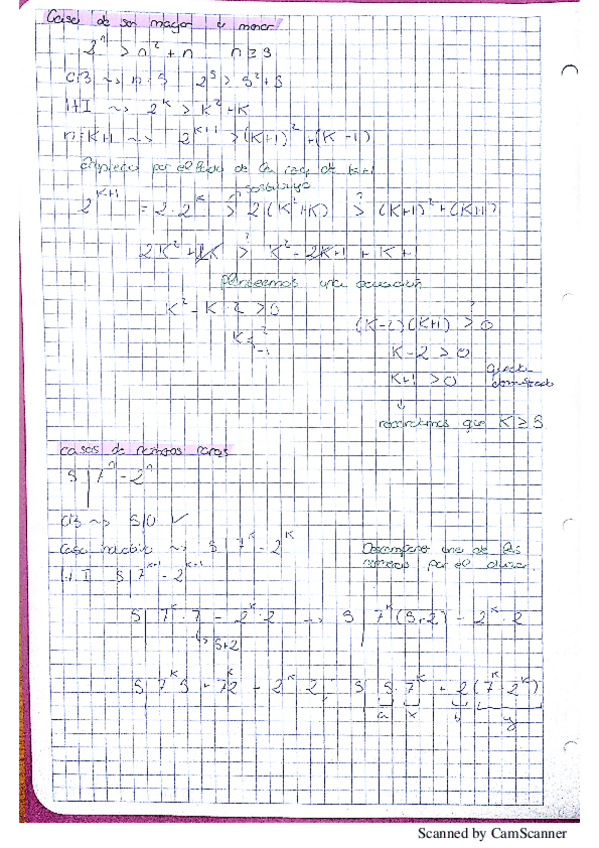 Caso de ser mayor o menor
2^n > n^2 + n n ≥ 5
CB ~> n=5 2^5 > 5^2 + 5
HI ~> 2^K > K^2 + K
n=K+1 ~> 2^{K+1} > (K+1)^2 + (K+1)
por el de la de K+1
sustituyo
2^{K+1} = 2·2^K > 2(K^2+K) >? (K+1)^2 + (K+1)
2K^2 + 2K >? K^2 - 2K+1 + K+1
planteamos una ecuación
K^2 - K - 2 > 0
K < 2 -1
(K-2)(K+1) >? 0
K-2 > 0
K+1 > 0
queda demostrado
↓
recordemos que K ≥ 5
casos de números raros
5 | 7^n - 2^n
CB ~> 5|0 ✓
Caso ~> 5 | 7^K - 2^K
H.I 5 | 7^{K+1} - 2^{K+1}
Descompone uno de los números por el divisor.
5 | 7^K · 7 - 2^K · 2 ~> 5 | 7^K (5+2) - 2^K · 2
↳ 5+2
5 | 7^K 5 + 7^K 2 - 2^K 2, 5 | 5·7^K + 2(7^K - 2^K)
a x b y
Scanned by CamScanner